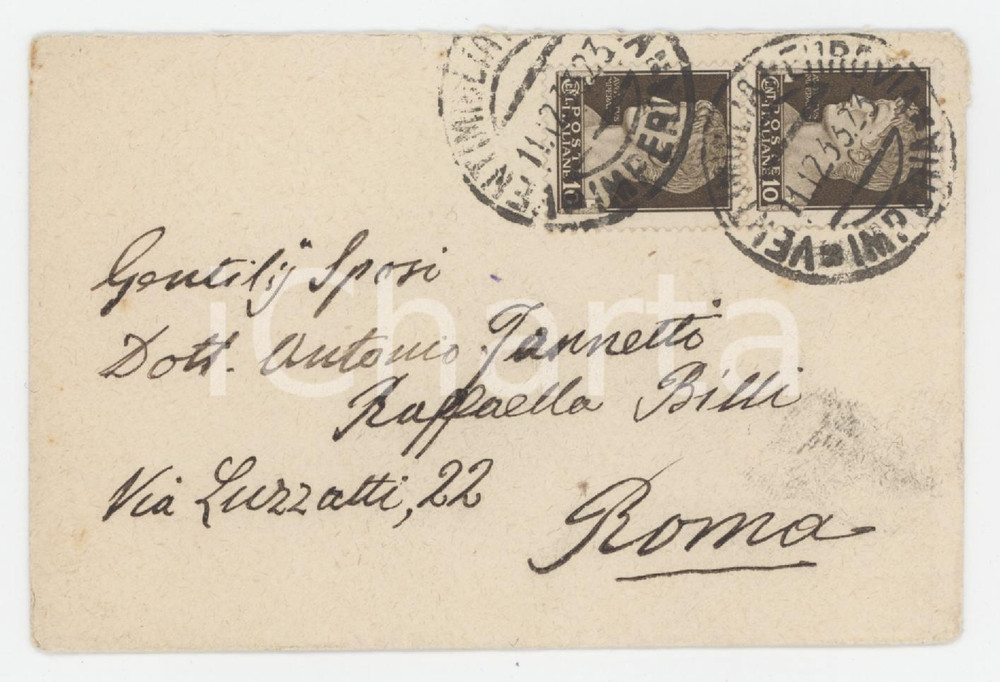 POSTE
ITALIANE
10
POSTE
ITALIANE
10
Gentili Sposi
Dott. Antonio Iannetti
Raffaella Billi
Via Luzzatti, 22
Roma
iCharta